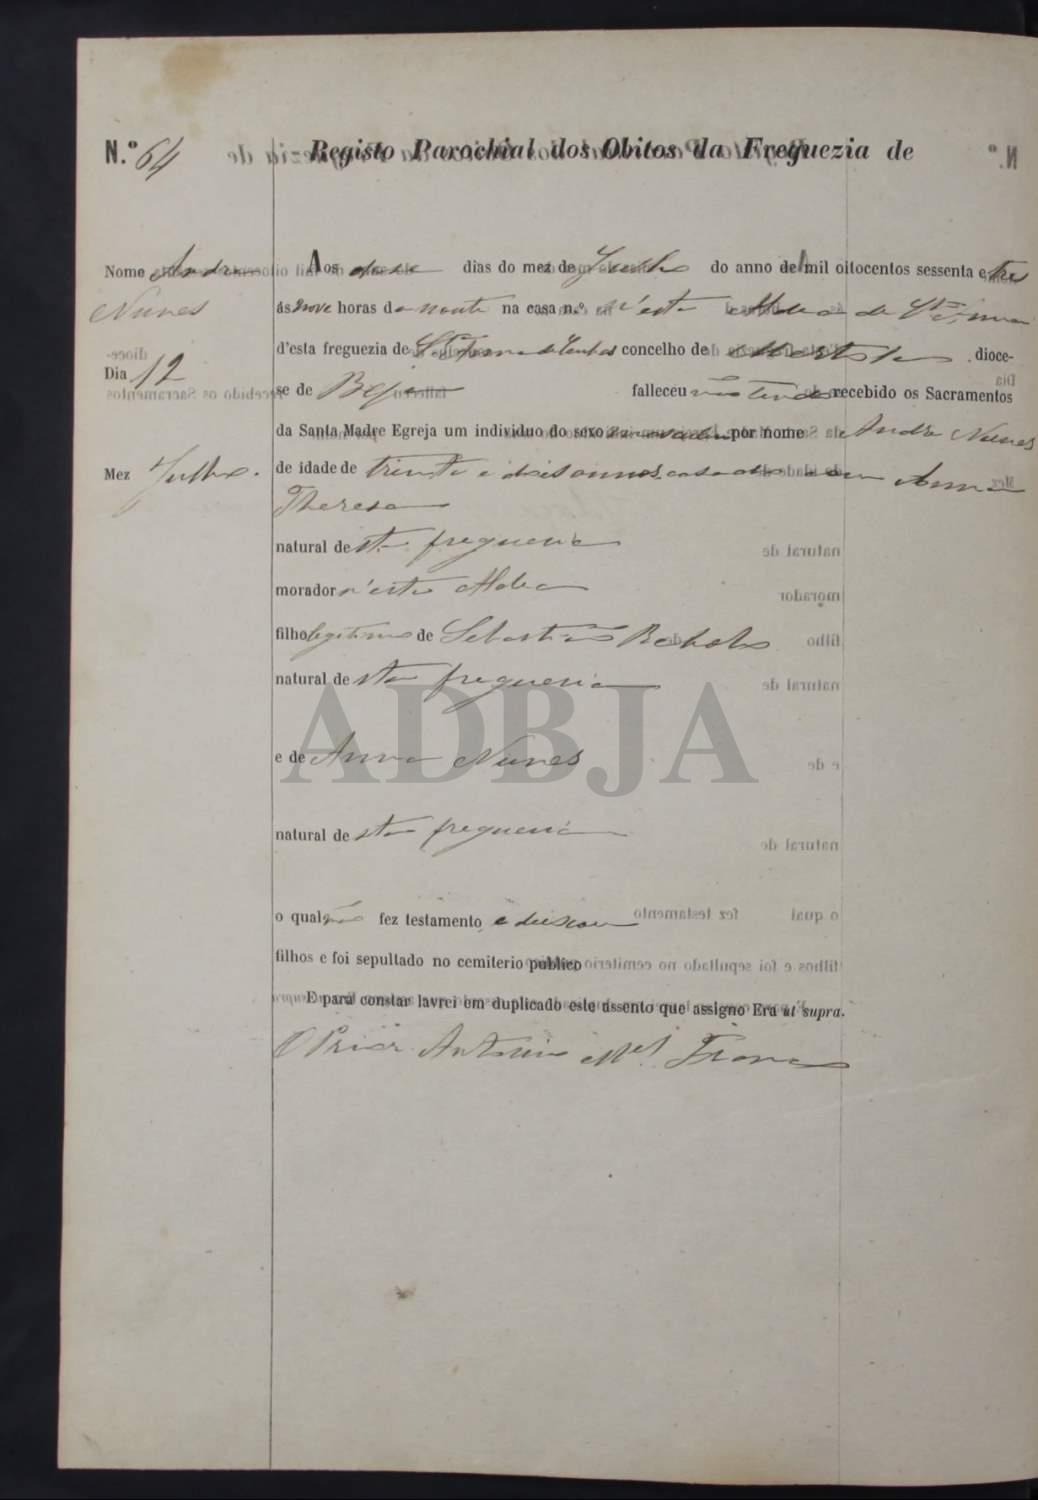 N.º 64 Registo Parochial dos Obitos da Freguezia de
Nome Andre
Nunes
Dia 12
Mez Julho.
Aos doze dias do mez de Julho do anno de mil oitocentos sessenta e tres
ás nove horas da noute na casa n.º n'esta Aldea de
d'esta freguezia de concelho de Mertola dioce-
se de Beja falleceu não tendo recebido os Sacramentos
da Santa Madre Egreja um individuo do sexo masculino por nome Andre Nunes
de idade de trinta e dois annos casado com Anna
Theresa
natural desta freguezia
morador n'esta Aldea
filho legitimo de Sebastião
natural desta freguezia
e de Anna Nunes
natural desta freguezia
o qual não fez testamento, e deixou
filhos e foi sepultado no cemiterio publico
E para constar lavrei em duplicado este assento que assigno Era ut supra.
O Prior Antonio Mel
ADBJA